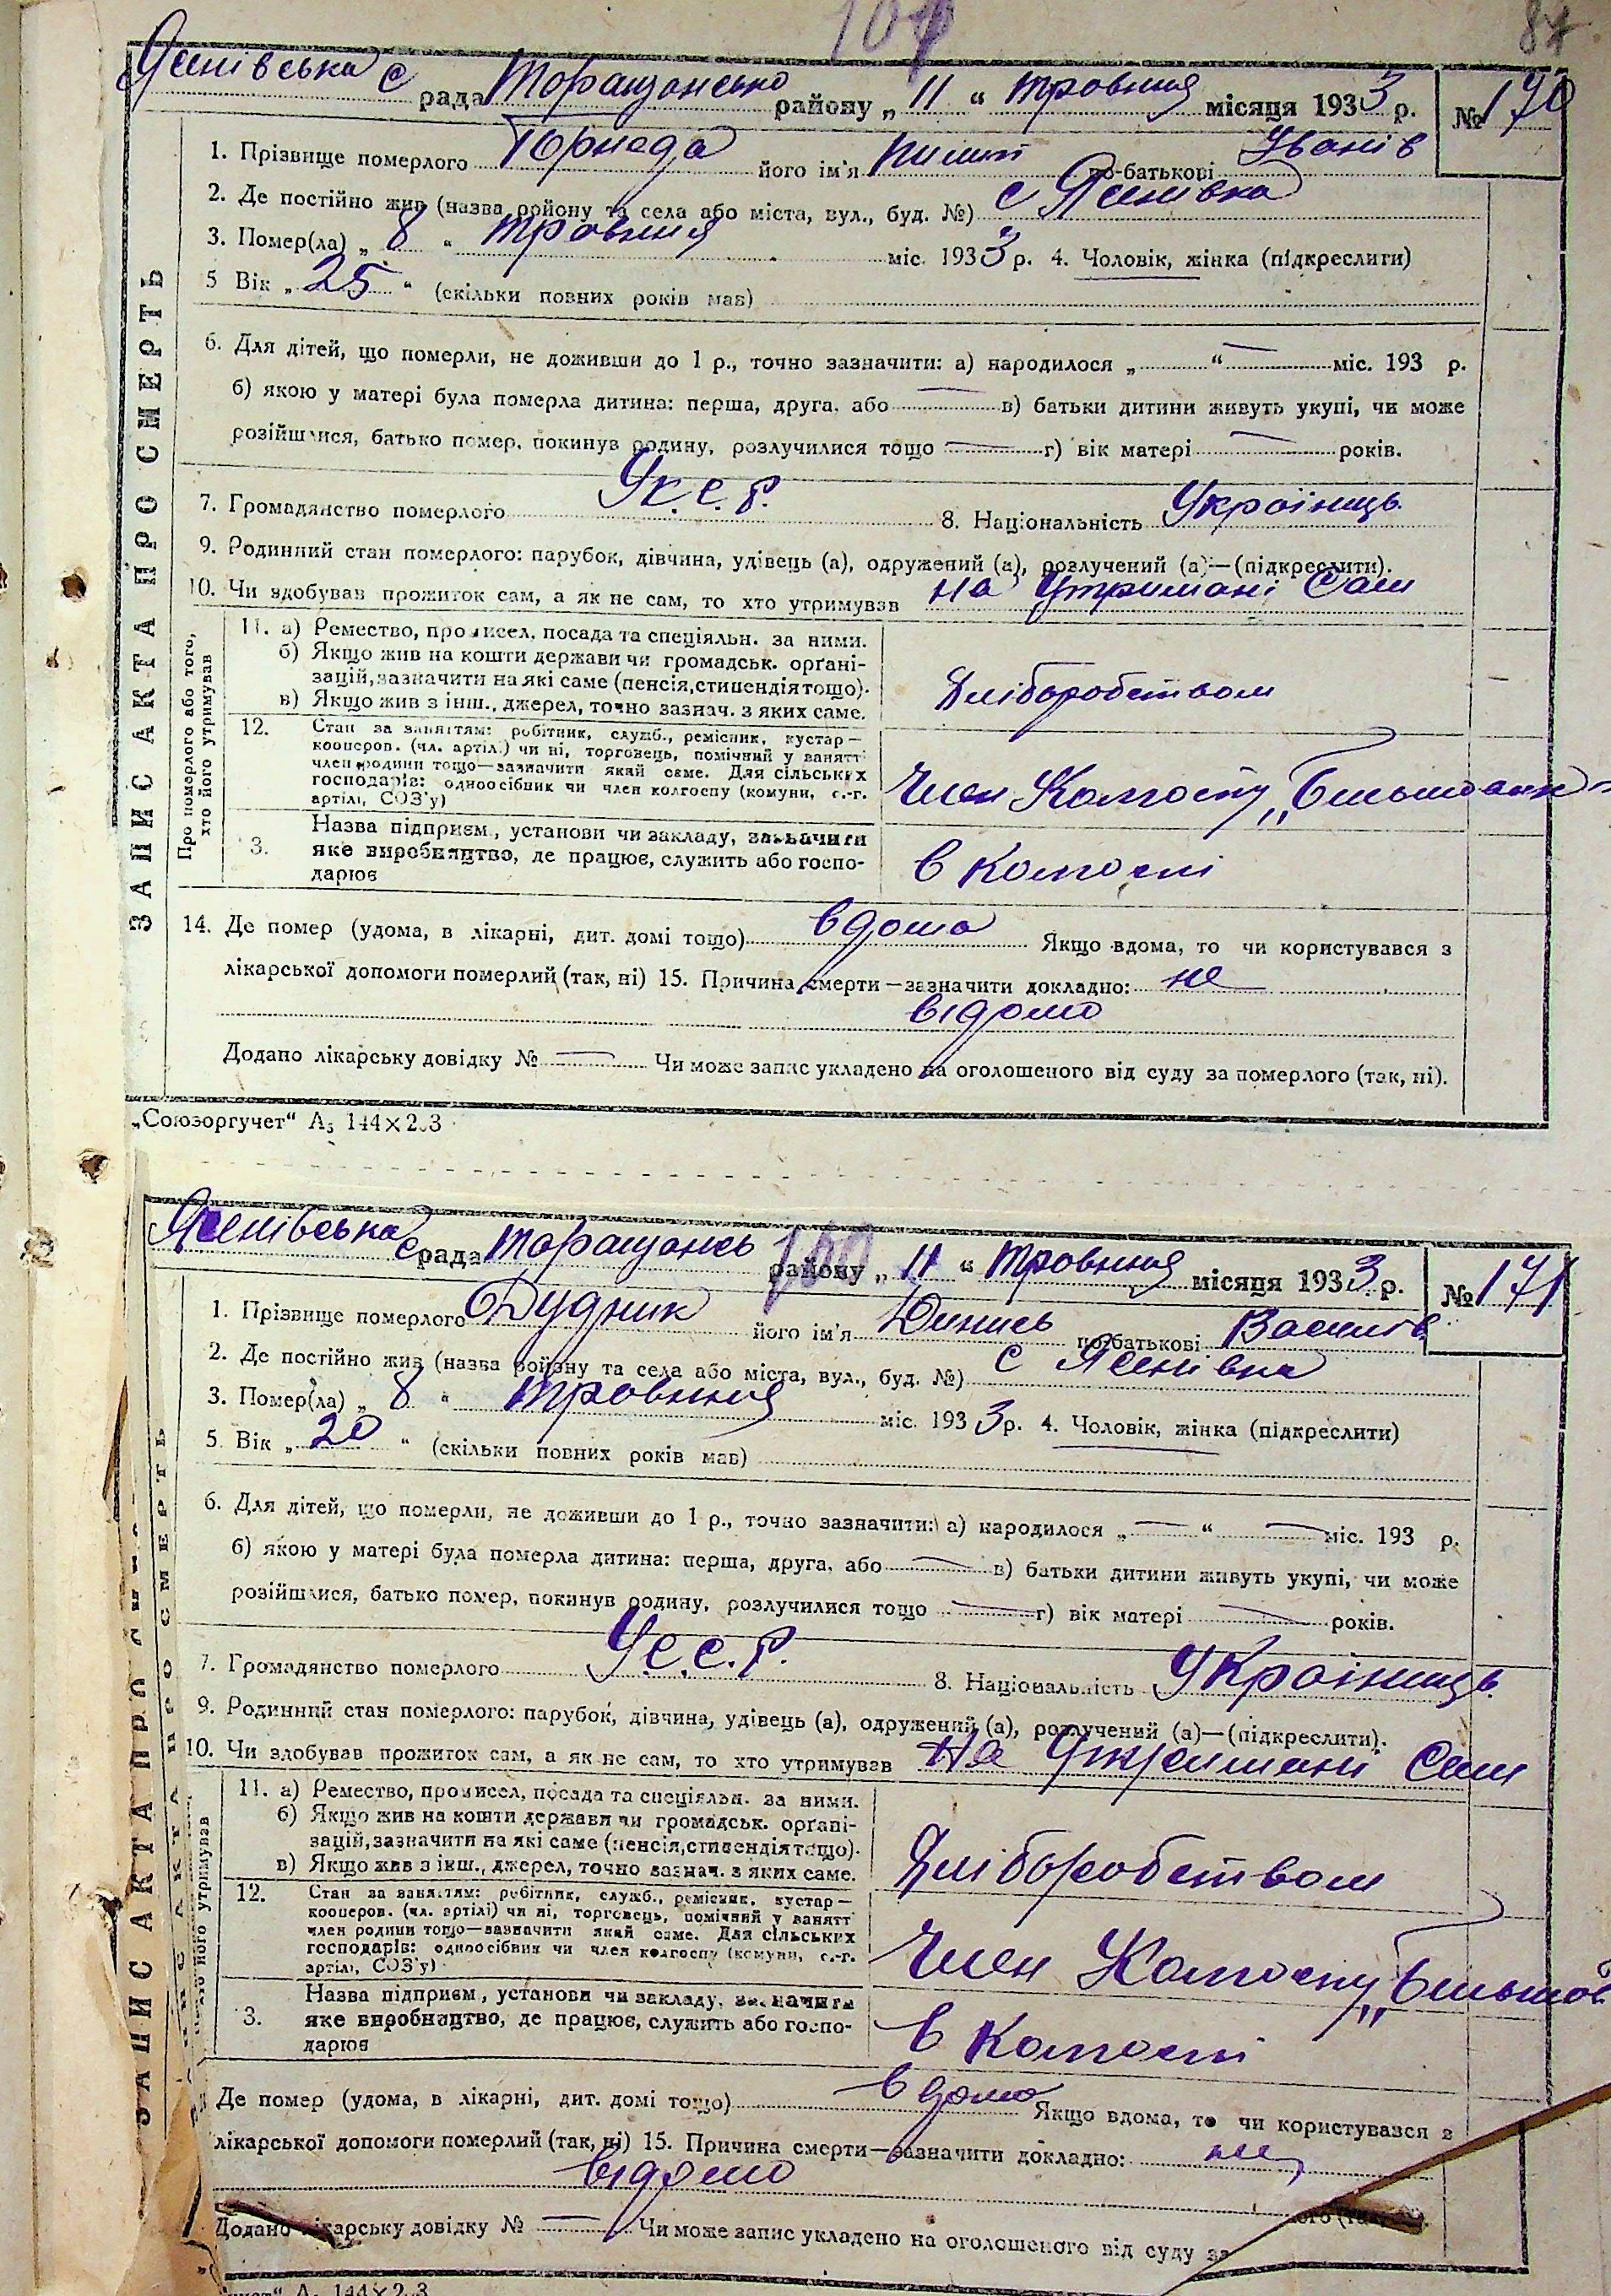 87
Ясенівська с рада Торащансько району „ 11 “ травня місяця 1933 р. № 170
1. Прізвище померлого його ім'я Пилип по-батькові Іванів
2. Де постійно жив (назва району та села або міста, вул., буд. №) с Ясенівка
3. Помер(ла) „ 8 “ травня міс. 1933 р. 4. Чоловік, жінка (підкреслити)
5 Вік „ 25 “ (скільки повних років мав)
6. Для дітей, що померли, не доживши до 1 р., точно зазначити: а) народилося „ — “ — міс. 193 р.
б) якою у матері була померла дитина: перша, друга, або — в) батьки дитини живуть укупі, чи може
розійшлися, батько помер, покинув родину, розлучилися тощо — г) вік матері — років.
7. Громадянство померлого Ук.С.Р. 8. Національність Українець
9. Родинний стан померлого: парубок, дівчина, удівець (а), одружений (а), розлучений (а)—(підкреслити).
10. Чи здобував прожиток сам, а як не сам, то хто утримував на утримані сам
ЗАПИС АКТА ПРО СМЕРТЬ
Про померлого або того, хто його утримував
11. а) Ремество, промисел, посада та спеціяльн. за ними.
б) Якщо жив на кошти держави чи громадськ. орґані-
зацій, зазначити на які саме (пенсія, стипендія тощо).
в) Якщо жив з інш., джерел, точно зазнач. з яких саме.
Хліборобством
12. Стан за заняттям: робітник, служб., ремісник, кустар—
кооперов. (чл. артіл.) чи ні, торговець, помічний у занятт
член родини тощо—зазначити який саме. Для сільських
господарів: одноосібник чи член колгоспу (комуни, с.-г.
артілі, СОЗ'у)
Член Колгоспу „Більшовик
3. Назва підприєм., установи чи закладу, зазначити
яке виробництво, де працює, служить або госпо-
дарює
в колгоспі
14. Де помер (удома, в лікарні, дит. домі тощо) вдома Якщо вдома, то чи користувався з
лікарської допомоги померлий (так, ні) 15. Причина смерти—зазначити докладно: не
відомо
Додано лікарську довідку № — Чи може запис укладено на оголошеного від суду за померлого (так, ні).
„Союзоргучет“ А₅ 144×203
Ясенівська с рада Торащансь району „ 11 “ травня місяця 1933 р. № 171
1. Прізвище померлого Дудник його ім'я Денись по-батькові Василів
2. Де постійно жив (назва району та села або міста, вул., буд. №) с Ясенівка
3. Помер(ла) „ 8 “ травня міс. 1933 р. 4. Чоловік, жінка (підкреслити)
5. Вік „ 20 “ (скільки повних років мав)
6. Для дітей, що померли, не доживши до 1 р., точно зазначити: а) народилося „ — “ — міс. 193 р.
б) якою у матері була померла дитина: перша, друга, або — в) батьки дитини живуть укупі, чи може
розійшлися, батько помер, покинув родину, розлучилися тощо — г) вік матері — років.
7. Громадянство померлого У.С.С.Р. 8. Національність Українець
9. Родинний стан померлого: парубок, дівчина, удівець (а), одружений (а), розлучений (а)—(підкреслити).
10. Чи здобував прожиток сам, а як не сам, то хто утримував на утримані сам
ЗАПИС АКТА ПРО
його утримував
11. а) Ремество, промисел, посада та спеціяльн. за ними.
б) Якщо жив на кошти держави чи громадськ. орґані-
зацій, зазначити на які саме (пенсія, стипендія тощо).
в) Якщо жив з інш., джерел, точно зазнач. з яких саме.
Хліборобством
12. Стан за заняттям: робітник, служб., ремісник, кустар—
кооперов. (чл. артілі) чи ні, торговець, помічний у занятт
член родини тощо—зазначити який саме. Для сільських
господарів: одноосібник чи член колгоспу (комуни, с.-г.
артілі, СОЗ'у)
Член Колгоспу „Більшов
3. Назва підприєм., установи чи закладу, зазначити
яке виробництво, де працює, служить або госпо-
дарює
в колгоспі
Де помер (удома, в лікарні, дит. домі тощо) вдома Якщо вдома, то чи користувався з
лікарської допомоги померлий (так, ні) 15. Причина смерти—зазначити докладно: не
відомо
Додано лікарську довідку № — Чи може запис укладено на оголошеного від суду за
144×203